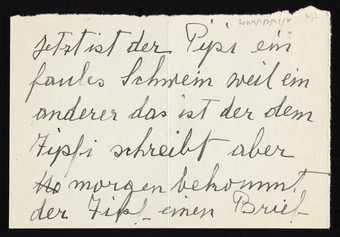 Jetzt ist der Pipsi ein
faules Schwein weil ein
anderer das ist der dem
Zipfi schreibt aber
morgen bekommt
der Zipf. einen Brief.